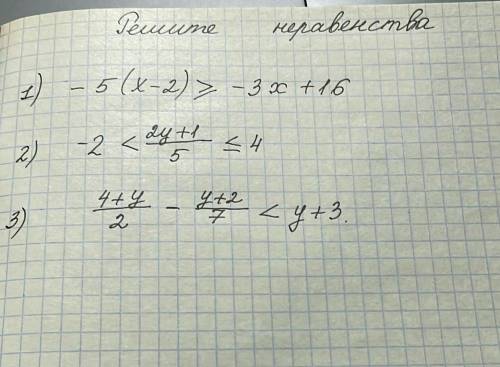 Решите неравенства
1) - 5 (x-2) ⩾ -3x +16
2) -2 < (2y+1)/5 ≤ 4
3) (4+y)/2 - (y+2)/7 < y+3.